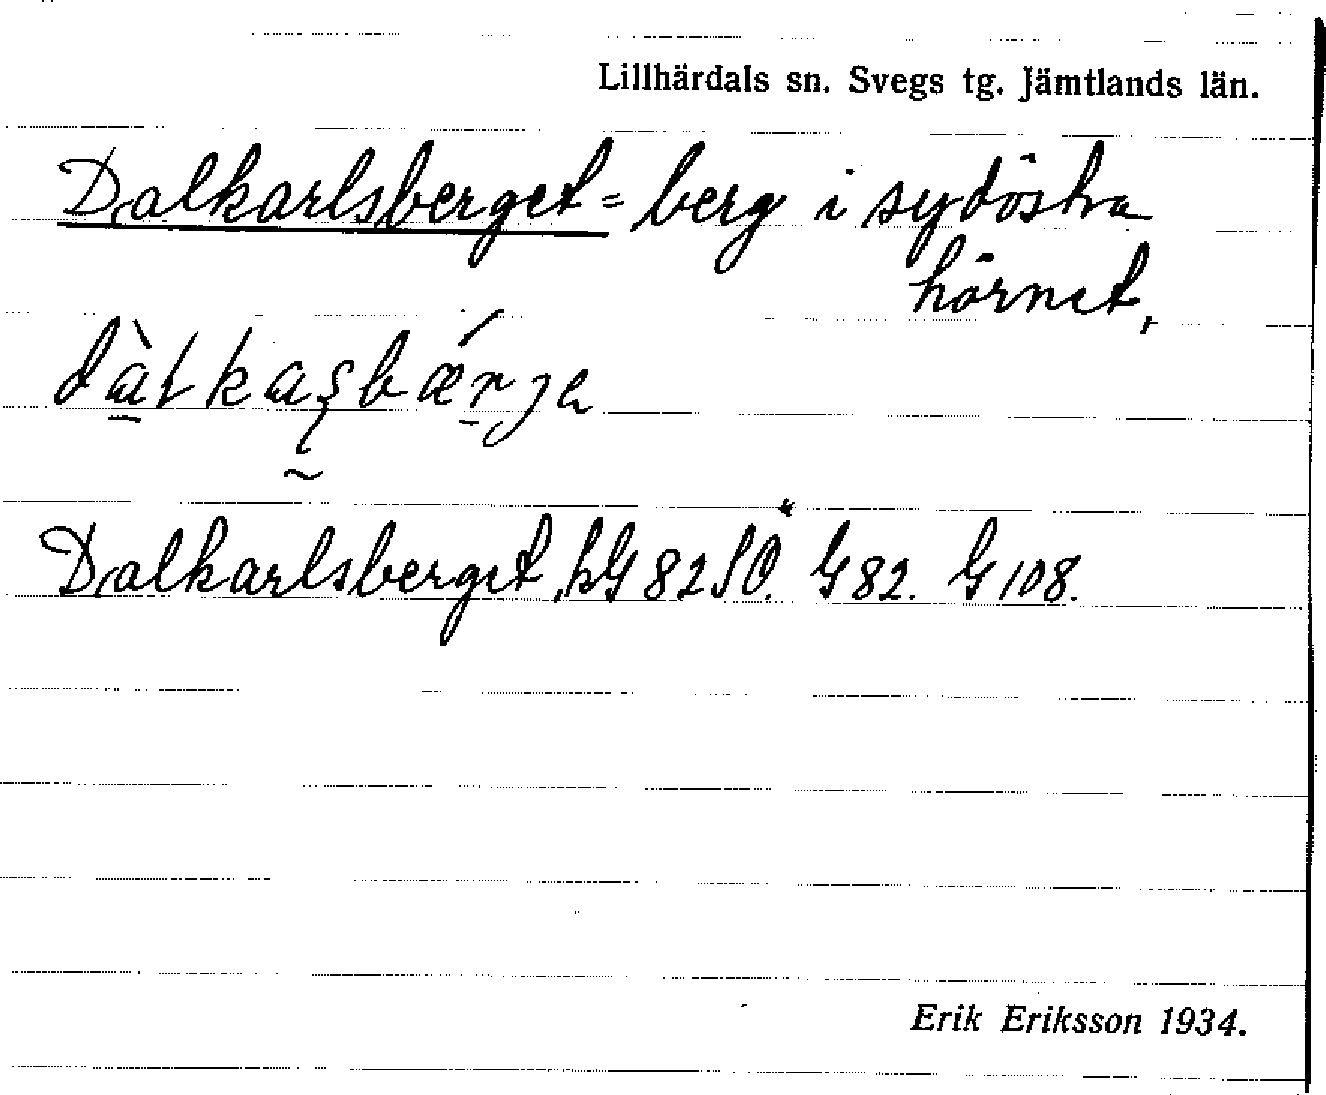 Lillhärdals sn. Svegs tg. Jämtlands län.
Dalkarlsberget = berg i sydöstra
hörnet,
Dalkarlsberget, hG 82 SO. G 82. G 108.
Erik Eriksson 1934.